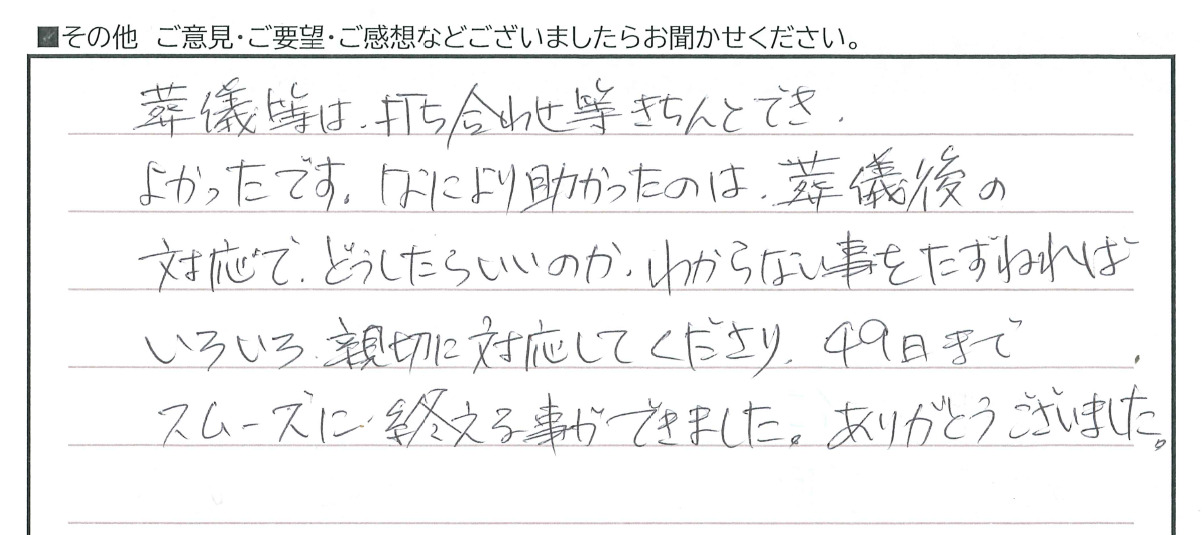 ■その他 ご意見・ご要望・ご感想などございましたらお聞かせください。
葬儀時は、打ち合わせ等きちんとでき、
よかったです。なにより助かったのは、葬儀後の
対応で、どうしたらいいのか、わからない事をたずねれば
いろいろ、親切に対応してくださり、49日まで、
スムーズに終える事ができました。ありがとうございました。